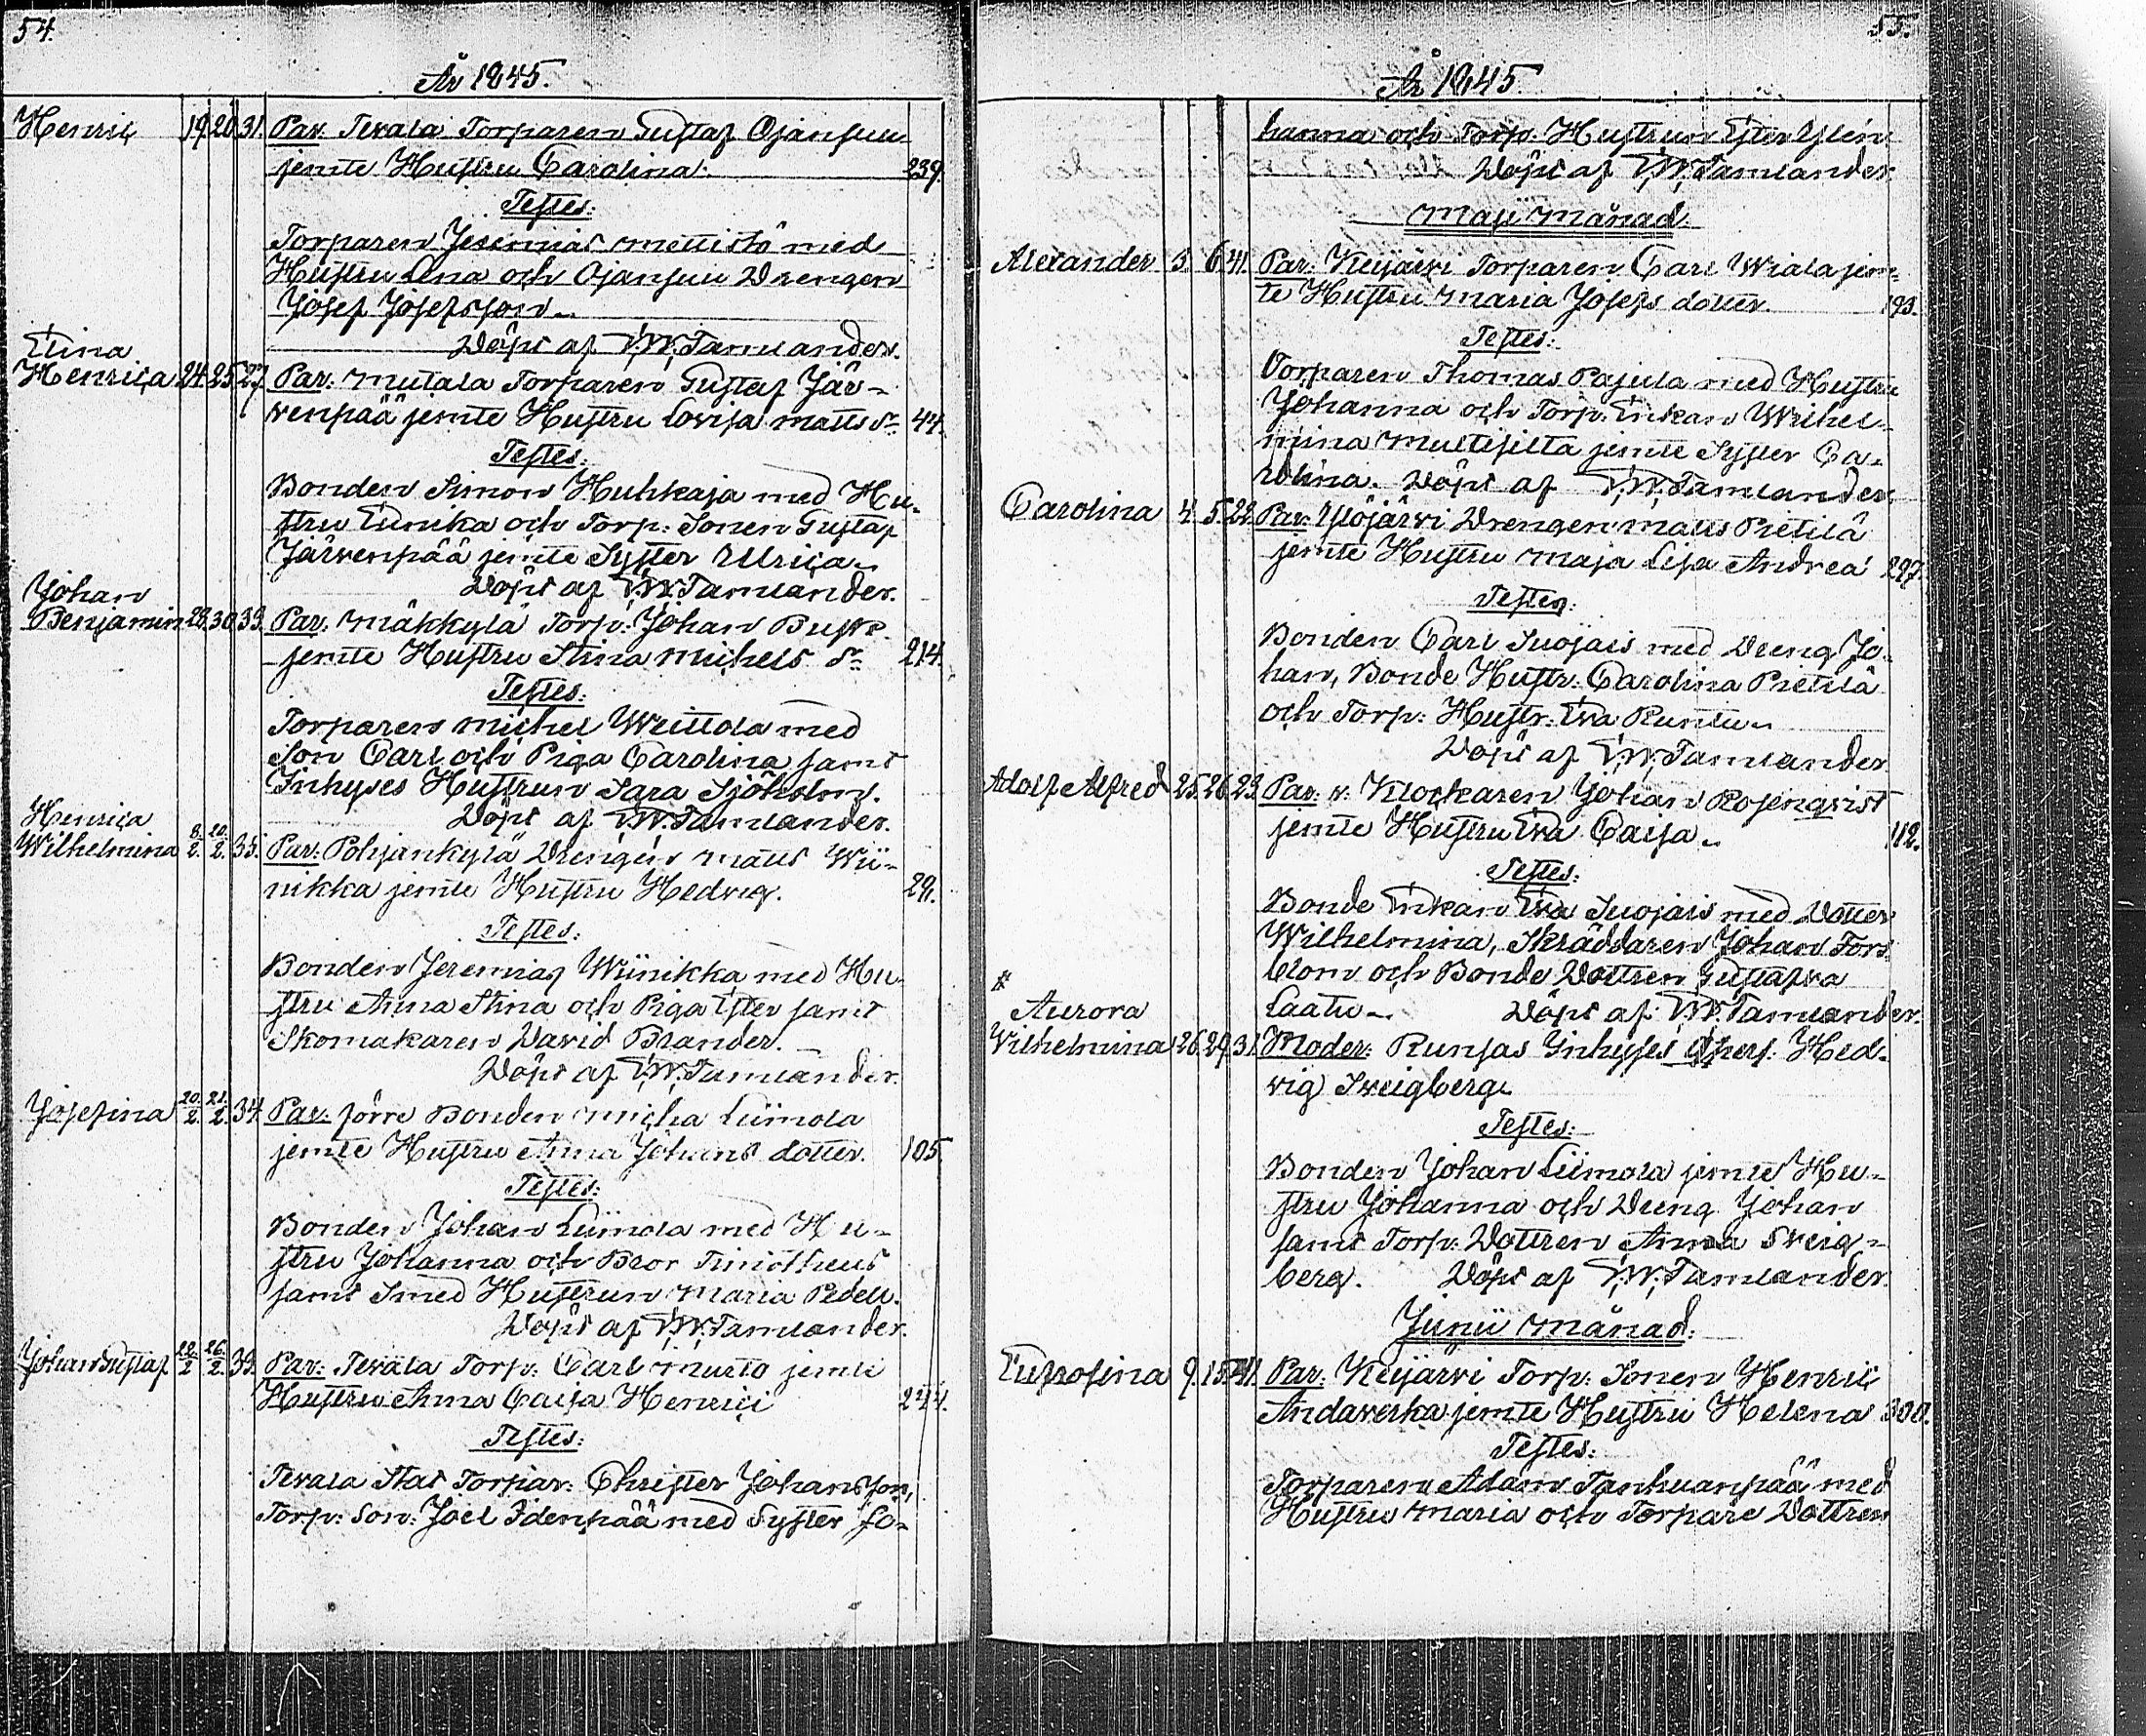 54.
År 1845.
Henric 19. 20. 31. Par. Terala Torparen Gustaf Ojansuu
jemte Hustru Carolina. 239.
Testes:
Torparen Jeremias Mettistö med
Hustru Lena och Ojansuu Drengen
Josef Josefsson.
Döpt af F. W. Tamlander.
Elina
Henrica 24. 25. 27. Par: Mutala Torparen Gustaf Jär-
venpää jemte Hustru Lovisa Matts dr 44.
Testes:
Bonden Simon Huhkaja med Hu-
stru Eunika och Torp: Sonen Gustaf
Järvenpää jemte Syster Ulrica.
Döpt af F. W. Tamlander.
Johan
Benjamin 29. 30. 33. Par. Mäkkylä Torp: Johan
jemte Hustru Stina Michels dr 214.
Testes:
Torparen Michel Weittola med
Son Carl och Piga Carolina samt
Inhyses Hustrun Sara Sjöholm.
Döpt af F. W. Tamlander.
Henrica
Wilhelmina 8/2. 20/2. 35. Par: Pohjankylä Drengen Matts Wii-
nikka jemte Hustru Hedvig. 29.
Testes:
Bonden Jeremias Wiinikka med Hu-
stru Anna Stina och Piga Ester samt
Skomakaren David Brander.
Döpt af F. W. Tamlander.
Josefina 20/2. 21/2. 34. Par: förre Bonden Micha Liimola
jemte Hustru Anna Johans dotter. 105.
Testes:
Bonden Johan Liimola med Hu-
stru Johanna och Bror Timotheus
samt Smed Hustrun Maria Pedell.
Döpt af F. W. Tamlander.
Johan Gustaf 22/2 26/2. 39. Par: Terala Torp: Carl Murto jemte
Hustru Anna Caisa Henrici 244.
Testes:
Terala Stat Torpar: Christer Johansson,
Torp: Son: Joel Idenpää med Syster Jo-
55.
År 1845.
hanna och Torp: Hustrun Ester Ylén
Döpt af F. W. Tamlander.
Maji Månad.
Alexander 5. 6. 41. Par: Keijärvi Torparen Carl Wiala jem-
te Hustru Maria Josefs dotter. 193.
Testes:
Torparen Thomas Pajula med Hustru
Johanna och Torp: Enkan Wilhel-
mina Multisilta jemte Syster Ca-
rolina. Döpt af F. W. Tamlander
Carolina 4. 5. 22. Par: Ylöjärvi Drengen Matts Pietilä
jemte Hustru Maja Lisa Andreæ 297.
Testes:
Bonden Carl Suojais med Dreng Jo-
han, Bonde Hustr: Carolina Pietilä
och Torp: Hustr: Eva Runtu.
Döpt af F. W. Tamlander
Adolf Alfred 25. 26. 23. Par: v: Klockaren Johan Rosenqvist
jemte Hustru Eva Caisa. 112.
Testes:
Bonde Enkan Eva Suojais med Dotter
Wilhelmina, Skräddaren Johan Fors-
blom och Bonde Dottren Gustafva
Laatu. Döpt af F. W. Tamlander.
#
Aurora
Wilhelmina 26. 29. 31. Moder: Runsas Inhyses Qpers: Hed-
vig Sveigberg.
Testes:
Bonden Johan Liimola jemte Hu-
stru Johanna och Dreng Johan
samt Torp: Dottren Anna Sveig-
berg. Döpt af F. W. Tamlander.
Junii Månad.
Eufrosina 9. 15. 41. Par: Keijärvi Torp: Sonen Henric
Andaverka jemte Hustru Helena 300.
Testes:
Torparen Adam Tanhuanpää med
Hustru Maria och Torpare Dottren